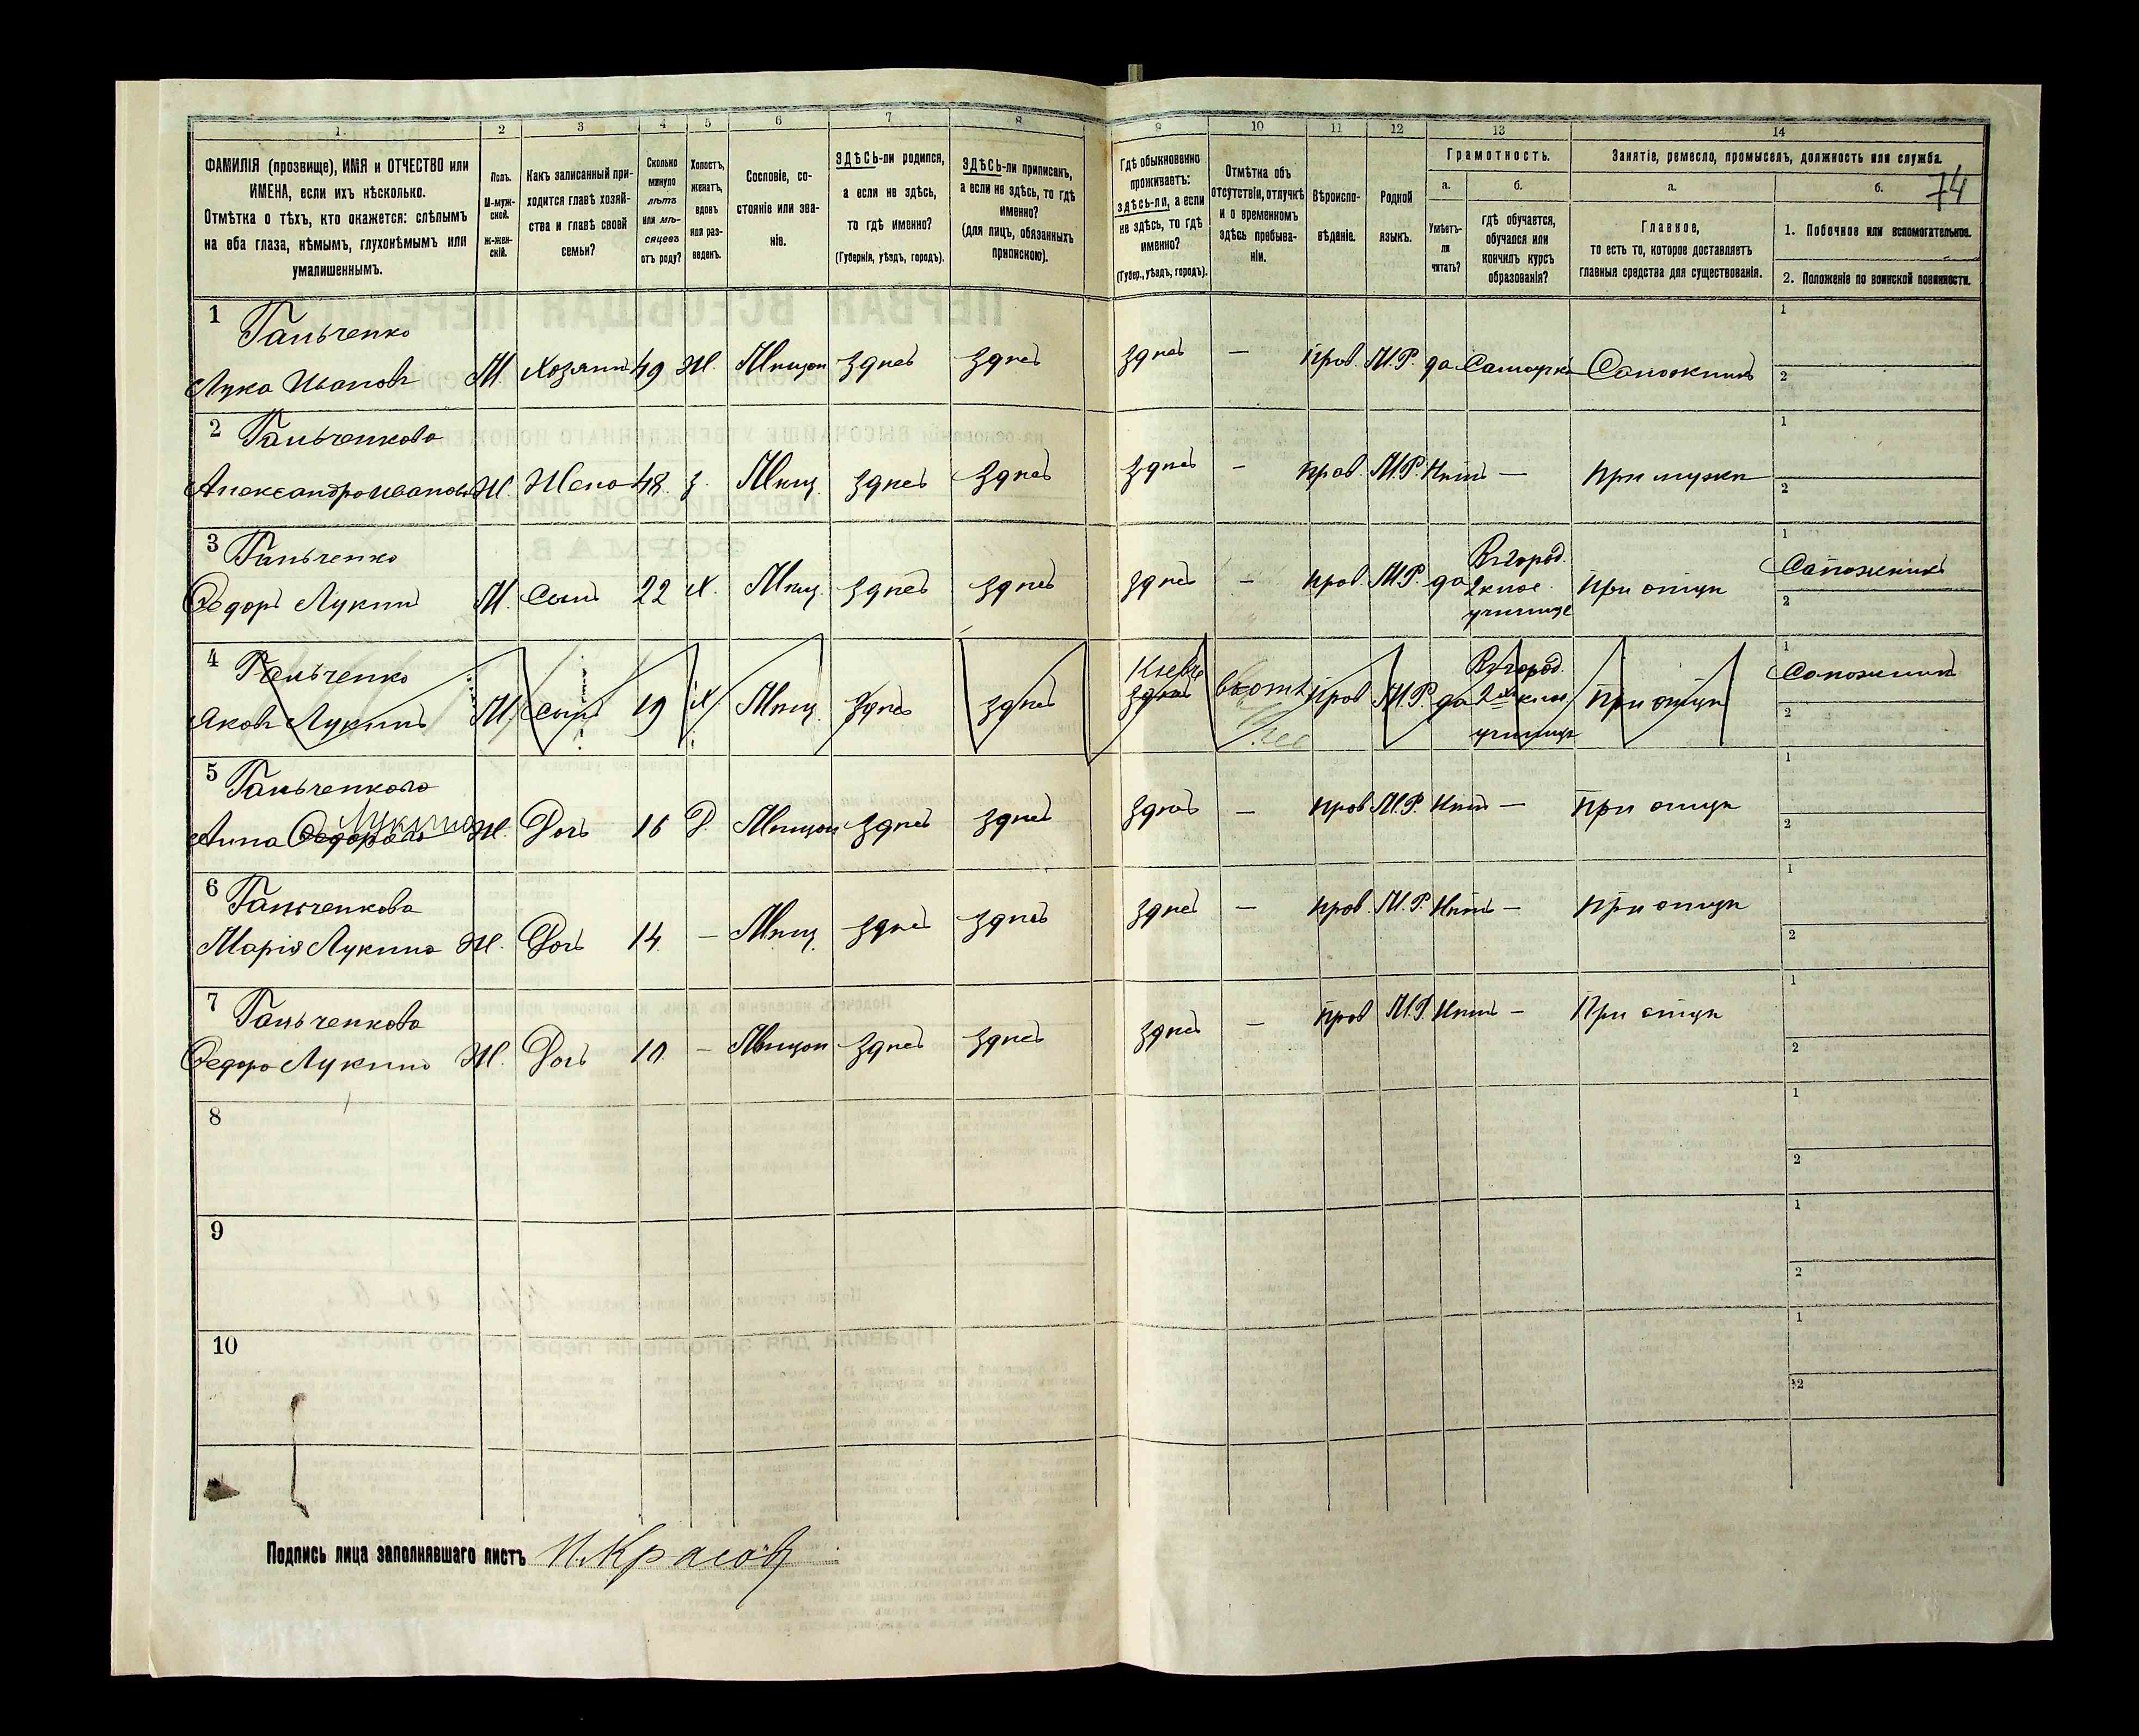 1.
2
3
4
5
6
7
8
9
10
11
12
13
14
ФАМИЛІЯ (прозвище), ИМЯ и ОТЧЕСТВО или
ИМЕНА, если ихъ нѣсколько.
Отмѣтка о тѣхъ, кто окажется: слѣпымъ
на оба глаза, нѣмымъ, глухонѣмымъ или
умалишеннымъ.
Полъ.
М-муж-
ской.
Ж-жен-
скій.
Какъ записанный при-
ходится главѣ хозяй-
ства и главѣ своей
семьи?
Сколько
минуло
лѣтъ
или мѣ-
сяцевъ
отъ роду?
Холостъ,
женатъ,
вдовъ
или раз-
веденъ.
Сословіе, со-
стояніе или зва-
ніе.
ЗДѢСЬ-ли родился,
а если не здѣсь,
то гдѣ именно?
(Губернія, уѣздъ, городъ).
ЗДѢСЬ-ли приписанъ,
а если не здѣсь, то гдѣ
именно?
(для лицъ, обязанныхъ
припискою).
Гдѣ обыкновенно
проживаетъ:
здѣсь-ли, а если
не здѣсь, то гдѣ
именно?
(Губер., уѣздъ, городъ).
Отмѣтка объ
отсутствіи, отлучкѣ
и о временномъ
здѣсь пребыва-
ніи.
Вѣроиспо-
вѣданіе.
Родной
языкъ.
Грамотность.
а.
б.
Умѣетъ-
ли
читать?
гдѣ обучается,
обучался или
кончилъ курсъ
образованія?
Занятіе, ремесло, промыселъ, должность или служба.
74
а.
б.
Главное,
то есть то, которое доставляетъ
главныя средства для существованія.
1. Побочное или вспомогательное.
2. Положеніе по воинской повинности.
1 Ганьченко
Лука Ивановъ М. Хозяинъ 49 Ж. Мѣщан здѣсь здѣсь здѣсь — прав. М.Р. да Сапожникъ
1
2
2 Ганьченкова
Александра Иванова Ж. Жена 48 з. Мѣщ. здѣсь здѣсь здѣсь — прав. М.Р. Нѣтъ — при мужѣ
1
2
3 Ганьченко
Ѳедоръ Лукинъ М. Сынъ 22 Х. Мѣщ. здѣсь здѣсь здѣсь — прав. М.Р. да Въ город. 2 клас. училище при отцѣ
1 Сапожникъ
2
4 Ганьченко
Яковъ Лукинъ М. Сынъ 19 Х Мѣщ. здѣсь здѣсь Кіевѣ здѣсь прав М.Р. да Въ город. 2хъ клас училище При отцѣ
1 Сапожникъ
2
5 Ганьченкова
Лукина
Анна Ѳедорова Ж. Дочь 16 Д. Мѣщан здѣсь здѣсь здѣсь — прав М.Р. Нѣтъ — при отцѣ
1
2
6 Ганьченкова
Марія Лукина Ж. Дочь 14 — Мѣщ. здѣсь здѣсь здѣсь — прав. М.Р. Нѣтъ — при отцѣ
1
2
7 Ганьченкова
Ѳедора Лукина Ж. Дочь 10 — Мѣщан здѣсь здѣсь здѣсь — прав М.Р. Нѣтъ — При отцѣ
1
2
8
1
2
9
1
2
10
1
2
Подпись лица заполнявшаго листъ